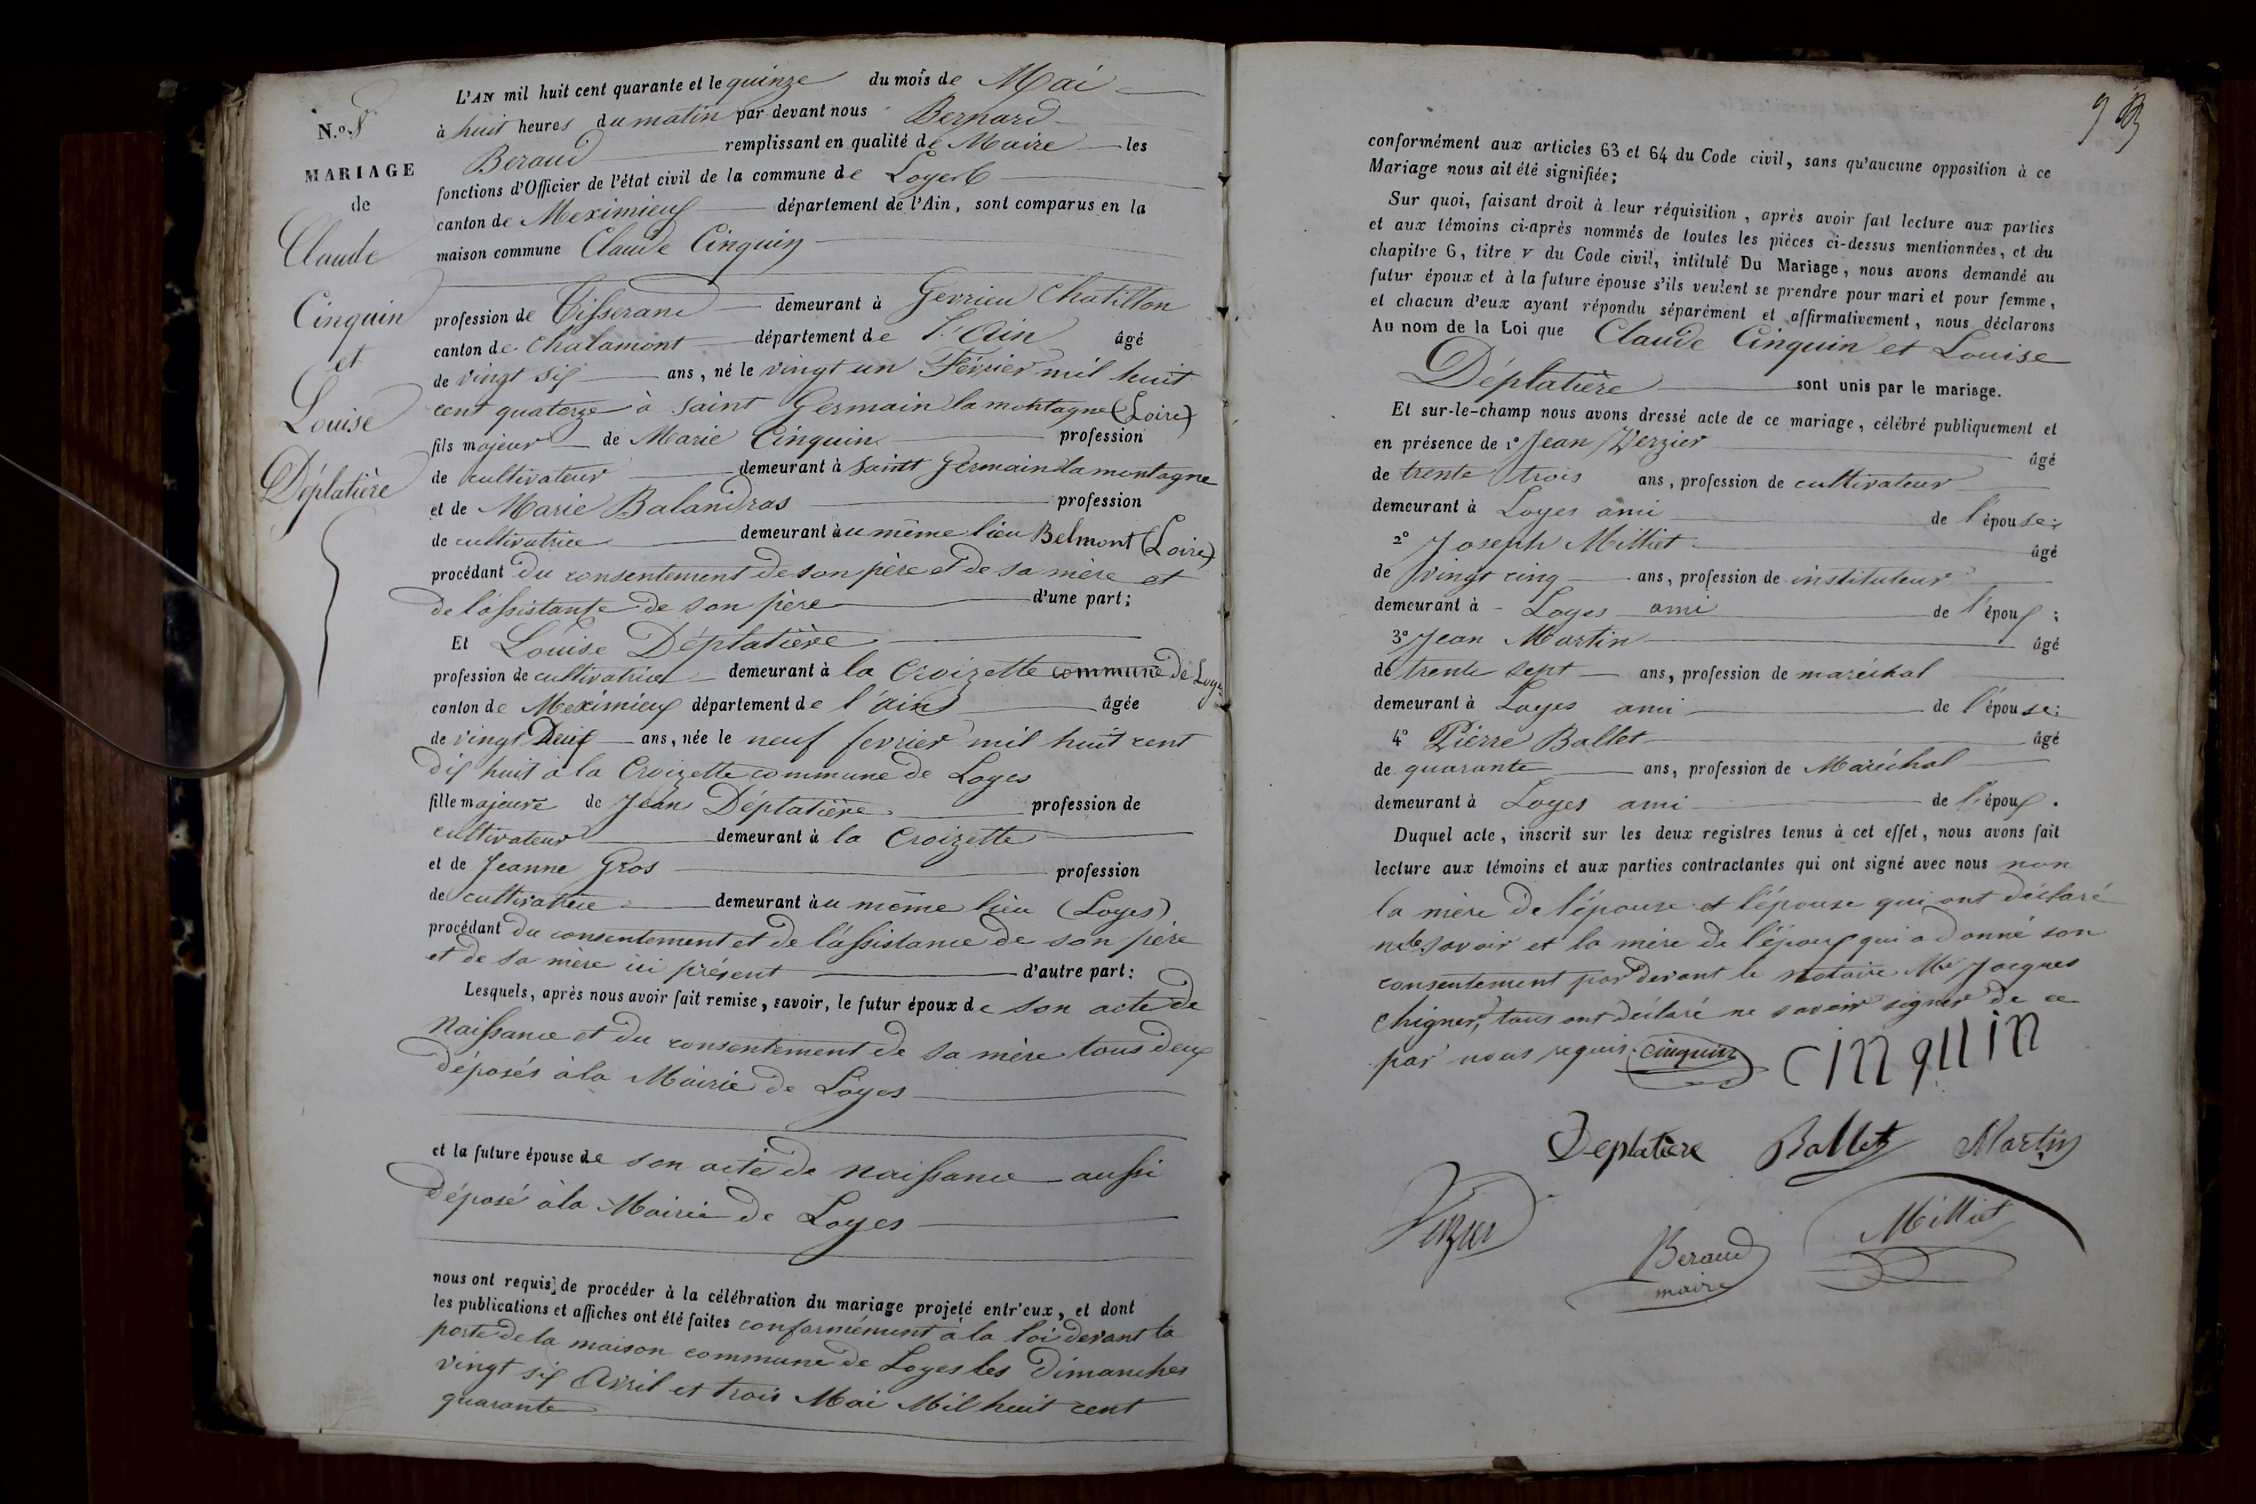 N.o 8
MARIAGE
de
Claude
Cinquin
et
Louise
Déplatière
L'AN mil huit cent quarante et le quinze du mois de Mai
à huit heures du matin par devant nous Bernard
Beraud remplissant en qualité de Maire les
fonctions d'Officier de l'état civil de la commune de Loyes
canton de Meximieux département de l'Ain, sont comparus en la
maison commune Claude Cinquin
profession de Tisserand demeurant à Gevrieu Chatillon
canton de Chalamont département de l'Ain âgé
de vingt six ans, né le vingt un Février mil huit
cent quatorze à Saint Germain la montagne (Loire)
fils majeur de Marie Cinquin profession
de cultivateur demeurant à Saint Germain la montagne
et de Marie Balandras profession
de cultivatrice demeurant au même lieu Belmont (Loire)
procédant du consentement de son père et de sa mère et
de l'assistance de son père d'une part;
Et Louise Déplatière
profession de cultivatrice demeurant à la Croizette commune de Loyes
canton de Meximieux département de l'Ain âgée
de vingt Deux ans, née le neuf fevrier mil huit cent
dix huit à la Croizette commune de Loyes
fille majeure de Jean Déplatière profession de
cultivateur demeurant à la Croizette
et de Jeanne Gros profession
de cultivatrice demeurant au même lieu (Loyes)
procédant du consentement et de l'assistance de son père
et de sa mère ici présent d'autre part:
Lesquels, après nous avoir fait remise, savoir, le futur époux de son acte de
Naissance et du consentement de sa mère tous deux
déposés à la Mairie de Loyes
et la future épouse de son acte de naissance aussi
déposé à la Mairie de Loyes
nous ont requis de procéder à la célébration du mariage projeté entr'eux, et dont
les publications et affiches ont été faites conformément à la loi devant la
porte de la maison commune de Loyes les Dimanches
vingt six Avril et trois Mai Mil huit cent
quarante
conformément aux articles 63 et 64 du Code civil, sans qu'aucune opposition à ce
Mariage nous ait été signifiée;
Sur quoi, faisant droit à leur réquisition, après avoir fait lecture aux parties
et aux témoins ci-après nommés de toutes les pièces ci-dessus mentionnées, et du
chapitre 6, titre V du Code civil, intitulé Du Mariage, nous avons demandé au
futur époux et à la future épouse s'ils veulent se prendre pour mari et pour femme,
et chacun d'eux ayant répondu séparément et affirmativement, nous déclarons
Au nom de la Loi que Claude Cinquin et Louise
Déplatière sont unis par le mariage.
Et sur-le-champ nous avons dressé acte de ce mariage, célébré publiquement et
en présence de 1° Jean Verzier âgé
de trente trois ans, profession de cultivateur
demeurant à Loyes ami de l'épouse;
2° Joseph Milliet âgé
de vingt cinq ans, profession de instituteur
demeurant à Loyes ami de l'époux;
3° Jean Martin âgé
de trente sept ans, profession de maréchal
demeurant à Loyes ami de l'épouse;
4° Pierre Ballet âgé
de quarante ans, profession de Maréchal
demeurant à Loyes ami de l'époux.
Duquel acte, inscrit sur les deux registres tenus à cet effet, nous avons fait
lecture aux témoins et aux parties contractantes qui ont signé avec nous non
la mère de l'épouse et l'épouse qui ont déclaré
ne le savoir et la mère de l'époux qui a donné son
consentement par devant le notaire Me Jacques
Chigner, tous ont déclaré ne savoir signer de ce
par nous requis. Cinquin cinquin
Deplatiere Ballet Martin
Verzier Beraud Milliet
maire